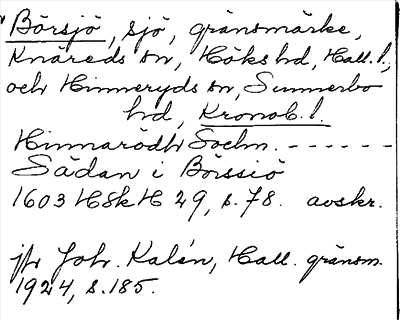 Börsjö, sjö, gränsmärke,
Knäreds sn, Höks hd, Hall. l.,
och Hinneryds sn, Sunnerbo
hd, Kronob. l.
Hinnarödh Sochn. - - - - - -
Sädan i Börssiö
1603 HSkH 29, s. 78. avskr.
jfr Joh. Kalén, Hall. gränsm.
1924, s. 185.